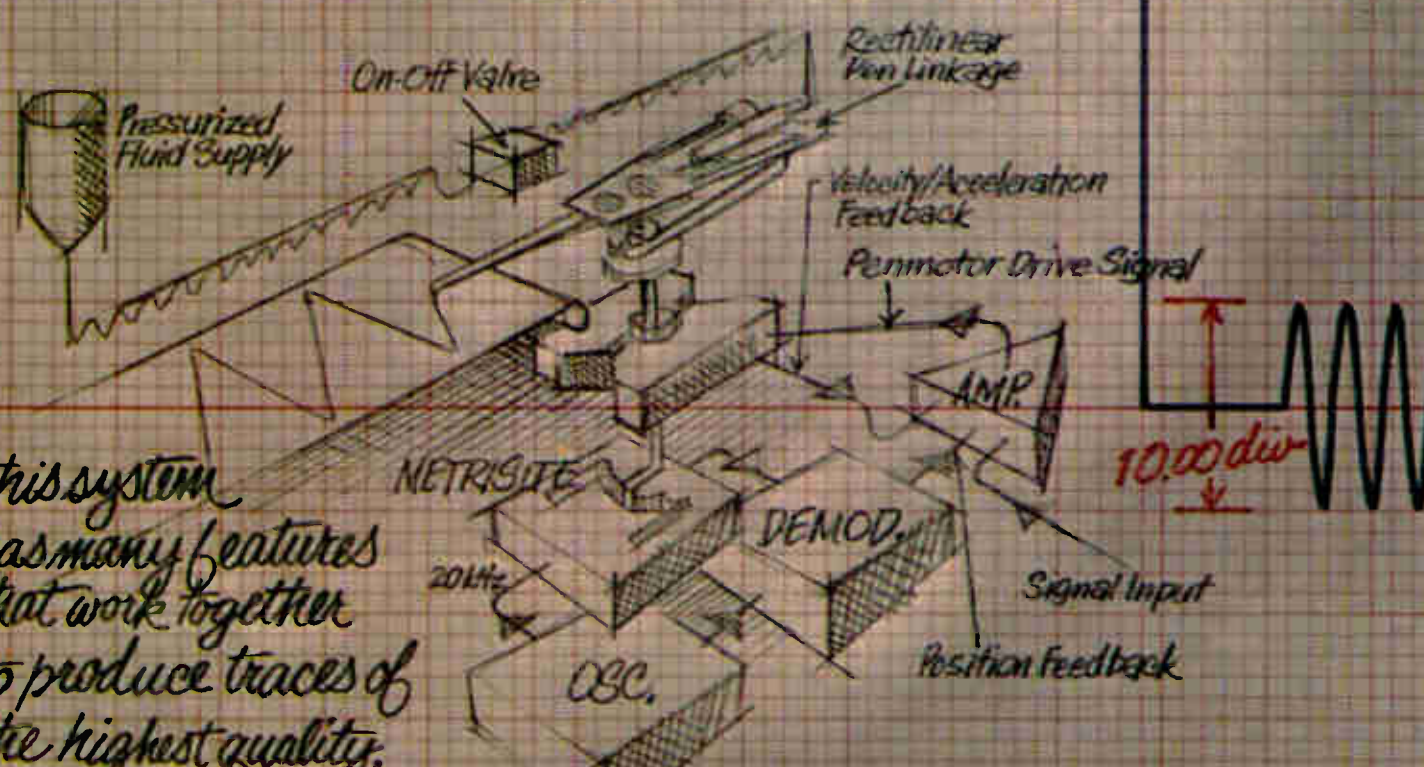 Rectilinear
Pen Linkage
On-Off Valve
Pressurized
Fluid Supply
Velocity/Acceleration
Feedback
Penmotor Drive Signal
AMP.
10.00 div
METRISITE
DEMOD.
20 kHz
Signal Input
Position Feedback
OSC.
his system
as many features
hat work together
o produce traces of
he highest quality.